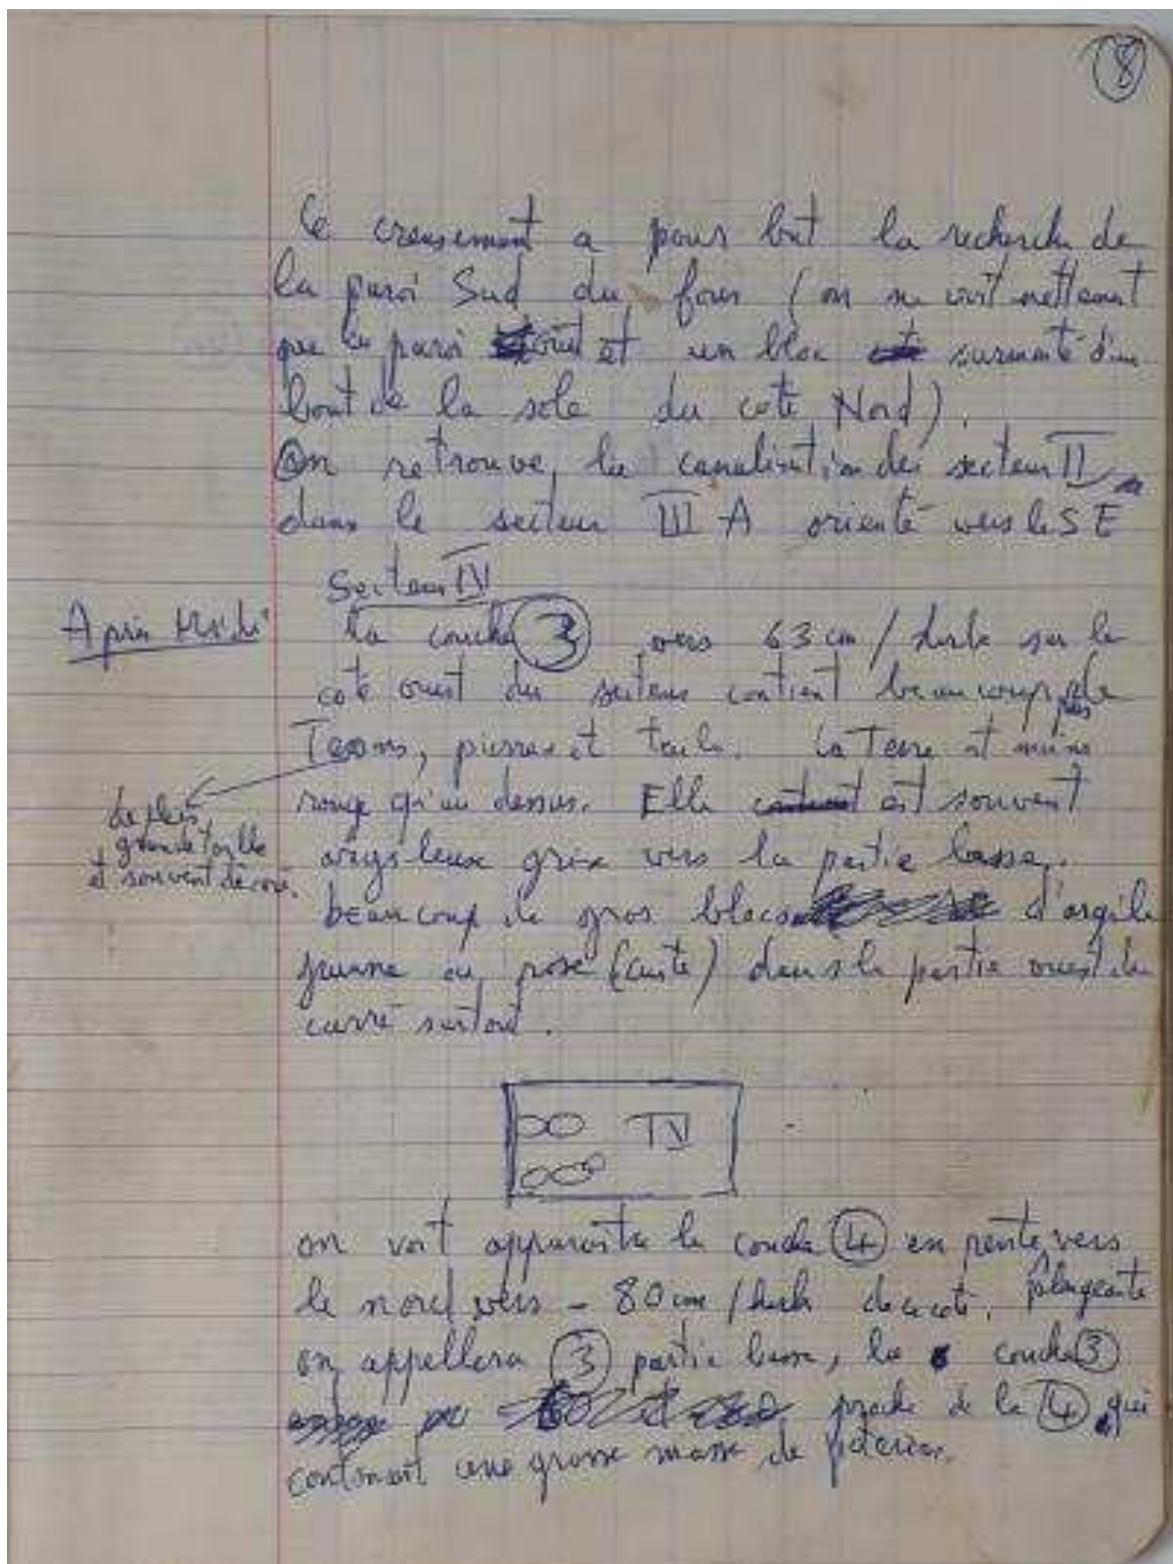 8
Ce creusement a pour but la recherche de
la paroi Sud du four (on ne voit nettement
que la paroi ouest et un bloc surmonté d'un
bout de la sole du coté Nord).
On retrouve la canalisation du secteur II
dans le secteur III A orienté vers le SE
Secteur IV
Après Midi
la couche 3 vers 63 cm / herbe sur le
coté ouest du secteur contient beaucoup de
Tessons, pierres et tuiles. La Terre est moins
rouge qu'au dessus. Elle est souvent
de plus
grande taille
et souvent décoré.
argileuse grise vers la partie basse.
beaucoup de gros blocs d'argile
jaune ou rose (cuite) dans la partie ouest du
carré surtout.
IV
on voit apparaitre la couche 4 en pente vers
le nord vers - 80 cm / herbe de ce coté. plongeante
on appellera 3 partie basse, la couche 3
proche de la 4 qui
contenait une grosse masse de poteries.